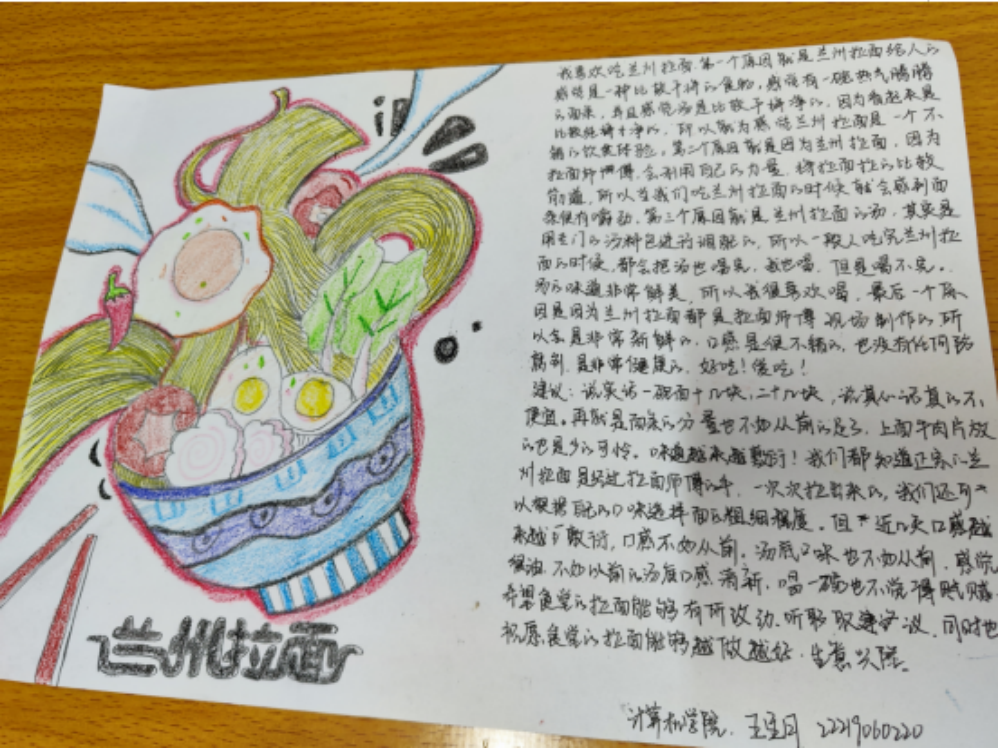 我喜欢吃兰州拉面.第一个原因就是兰州拉面给人的
感觉是一种比较干净的食物,感觉有一碗热气腾腾
的面条,并且感觉汤是比较干净的,因为看起来是
比较纯干净的,所以我为感觉兰州拉面是一个不
错的饮食体验。第二个原因就是因为兰州拉面,因为
拉面师傅,会利用自己的力量,将拉面拉的比较
筋道,所以当我们吃兰州拉面的时候就会感到面
条很有嚼劲,第三个原因就是兰州拉面的汤,其实是
用专门的汤料包进行调配的,所以一般人吃完兰州拉
面的时候,都会把汤也喝完,我也喝,但是喝不完。
汤的味道非常鲜美,所以我很喜欢喝,最后一个原
因是因为兰州拉面都是拉面师傅现场制作的所
以会是非常新鲜的,口感是很不错的,也没有任何防
腐剂,是非常健康的,好吃!爱吃!
建议:说实话一碗面十几块,二十几块,说真心话真的不
便宜。再就是面条的分量也不如从前的足了,上面牛肉片放
的也是少的可怜。味道越来越敷衍!我们都知道正宗的兰
州拉面是经过拉面师傅的手,一次次拉出来的,我们还可
以根据自己的口味选择面的粗细程度。但近几天口感越
来越敷衍,口感不如从前。汤底口味也不如从前,感觉
很油,不如以前的汤底口感清新,喝一碗也不觉得腻腻
希望食堂的拉面能够有所改动.听取建议,同时也
祝愿食堂的拉面能够越做越好,生意兴隆。
计算机学院 22219060220
兰州拉面